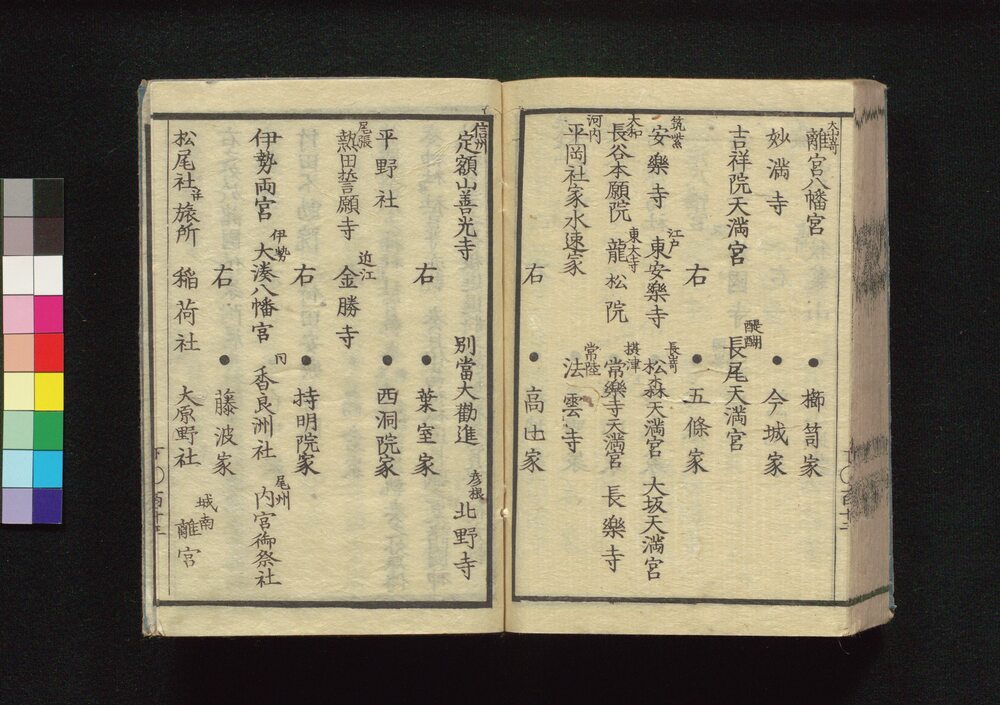 大山崎 離宮八幡宮 ●櫛笥家
妙満寺 ●今城家
吉祥院天満宮 醍醐 長尾天満宮
右 ●五條家
筑紫 安樂寺 江戸 東安樂寺 長崎 松森天満宮 大坂天満宮
大和 長谷本願院 東大寺 龍松院 摂津 常樂寺天満宮 長樂寺
河内 平岡社家水速家 常陸 法雲寺
右 ●高辻家
信州 定額山善光寺 別當大勸進 彦根 北野寺
右 ●葉室家
平野社 ●西洞院家
尾張 熱田誓願寺 近江 金勝寺
右 ●持明院家
伊勢両宮 伊勢 大湊八幡宮 仝 香良洲社 尾州 内宮御祭社
右 ●藤波家
松尾社并旅所 稲荷社 大原野社 城南 離宮